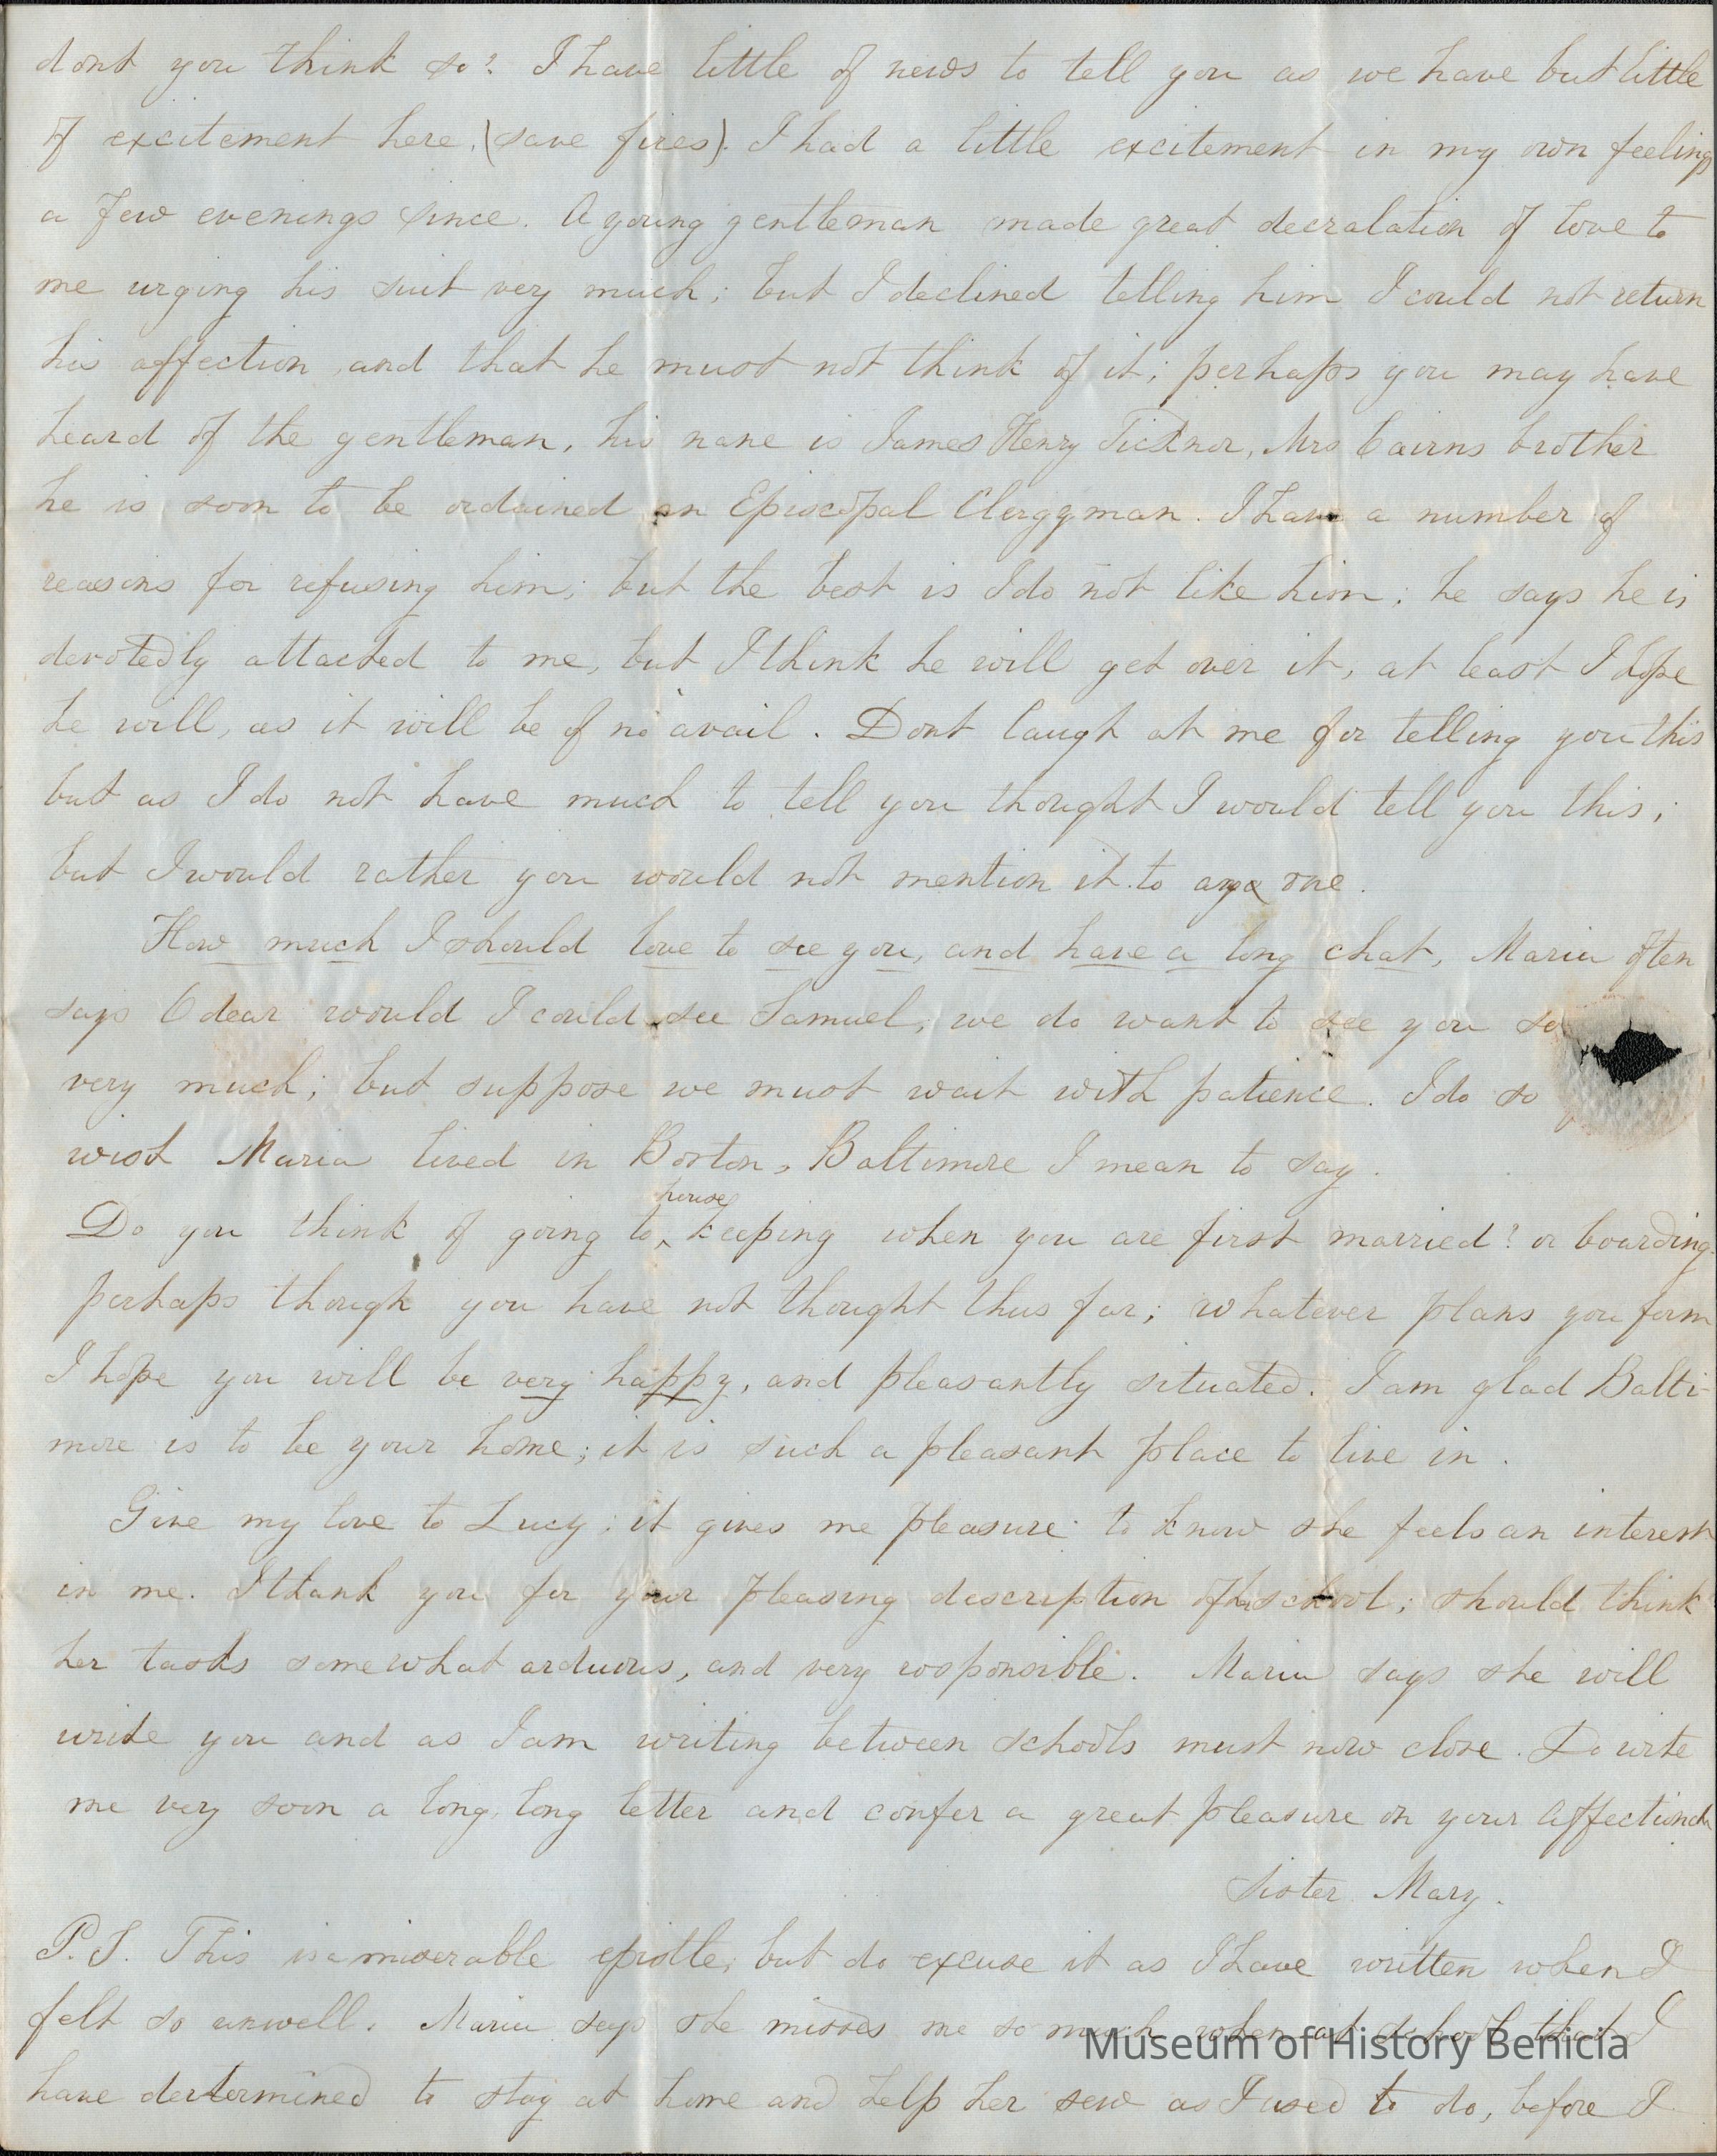 dont you think so? I have little of news to tell you as we have but little
of excitement here, (save fires). I had a little excitement in my own feelings
a few evenings since. A young gentleman made great decralation of love to
me urging his suit very much; but I declined telling him I could not return
his affection, and that he must not think of it; perhaps you may have
heard of the gentleman, his name is James Henry Ticknor, Mrs Cairns brother
he is soon to be ordained an Episcopal Clergyman. I have a number of
reasons for refusing him; but the best is I do not like him; he says he is
devotedly attached to me, but I think he will get over it, at least I hope
he will, as it will be of no avail. Dont laugh at me for telling you this
but as I do not have much to tell you thought I would tell you this;
but I would rather you would not mention it to any one.
How much I should love to see you, and have a long chat, Maria often
says O dear would I could see Samuel; we do want to see you so
very much; but suppose we must wait with patience. I do so
wish Maria lived in Boston, Baltimore I mean to say.
house
Do you think of going to ^ keeping when you are first married? or boarding.
perhaps though you have not thought thus far; whatever plans you form
I hope you will be very happy, and pleasantly situated. I am glad Balti-
more is to be your home; it is such a pleasant place to live in.
Give my love to Lucy; it gives me pleasure to know she feels an interest
in me. I thank you for your pleasing description of her school; should think
her tasks somewhat arduous, and very responsible. Maria says she will
write you and as I am writing between schools must now close. Do write
me very soon a long, long letter and confer a great pleasure on your affectionate
Sister Mary.
P.S. This is a miserable epistle, but do excuse it as I have written when I
felt so unwell. Maria says she misses me so much when at school that I
Museum of History Benicia
have dertermined to stay at home and help her sew as I used to do, before I